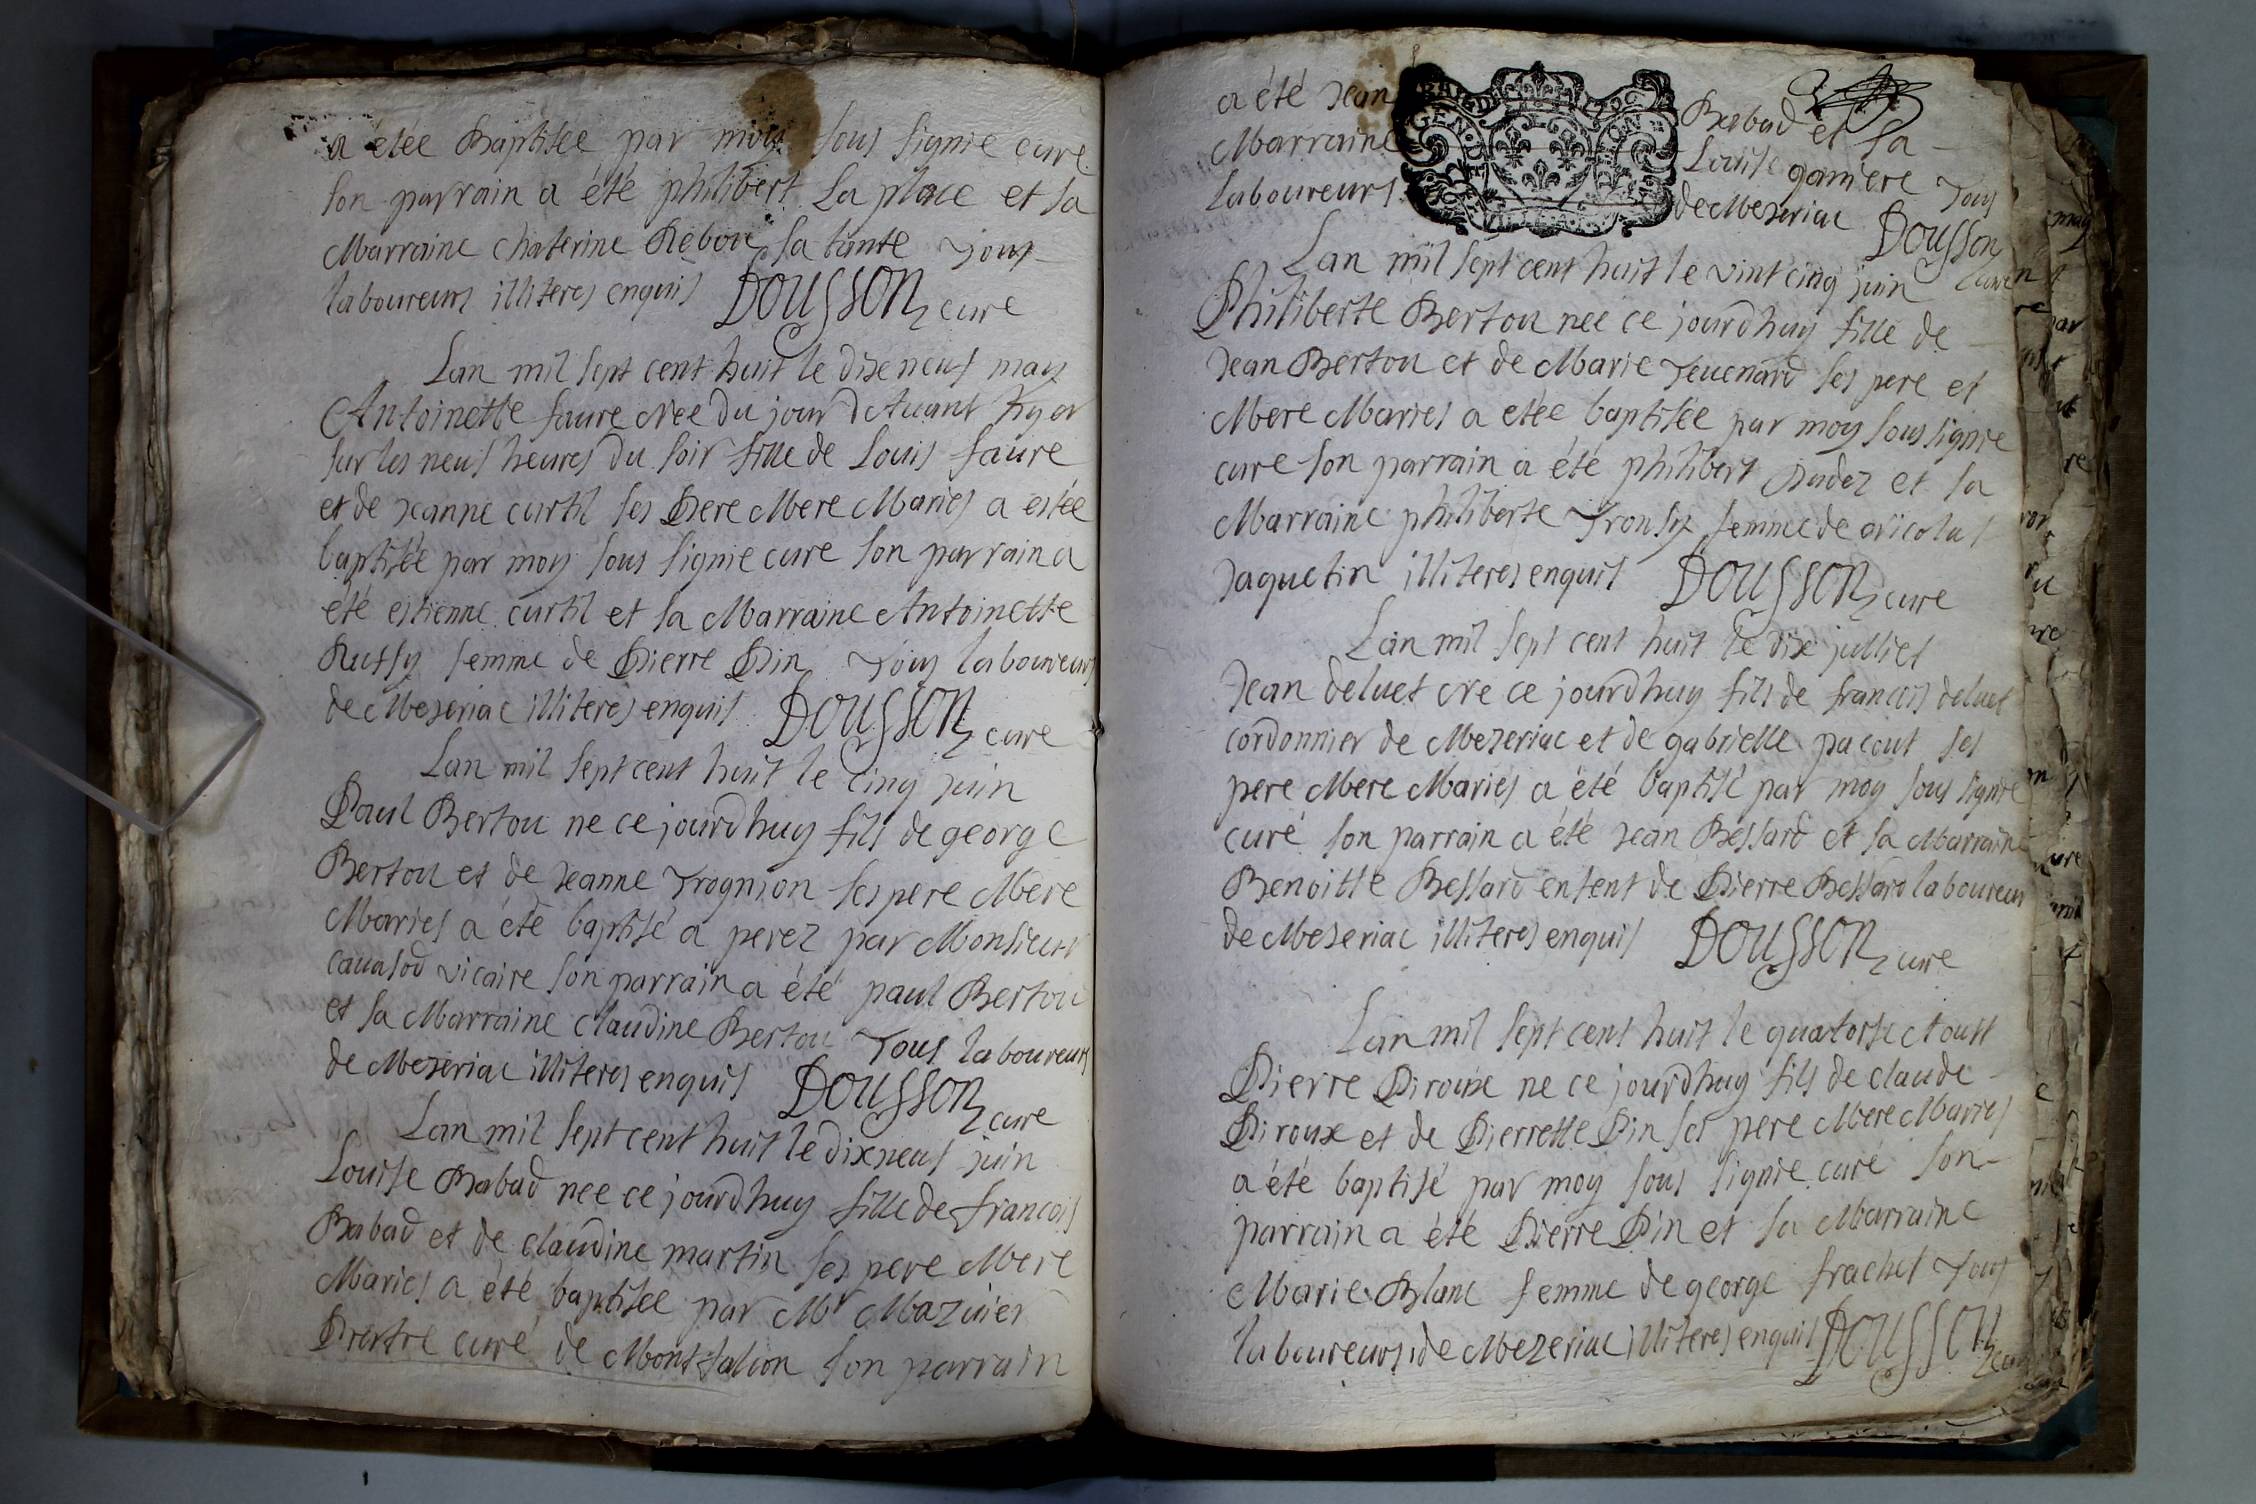 a étée Baptisée par moy sous signie cure
son parrain a été philibert La place et sa
Marraine chaterine Rebou sa tante Tous
laboureurs illiteres enquis DOUSSON cure
Lan mil sept cent huit le dixe neuf may
Antoinette faure Née du jour dAuant hyer
sur les neuf heures du soir fille de Louis faure
et de Jeanne curtil ses Pere Mere Mariés a estée
baptisée par moy sous signie cure son parrain a
été estienne curtil et sa Marraine Antoinette
Ruffy femme de Pierre Pin Tous laboureurs
de Mezeriac illiteres enquis DOUSSON cure
Lan mil sept cent huit le cinq juin
Paul Bertou ne ce jourdhuy fils de george
Bertou et de Jeanne Trognion ses pere Mere
Mariés a été baptisé a perez par Monsieur
cauasod vicaire son parrain a été paul Bertou
et sa Marraine claudine Bertou Tous laboureurs
de Mezeriac illiteres enquis DOUSSON cure
Lan mil sept cent huit le dixneuf juin
Louise Babad nee ce jourdhuy fille de francois
Babad et de claudine martin ses pere Mere
Mariés a été baptisée par Mr Mazuier
Prertre curé de Montfalcon son parrain
a été Jean Babad et sa
Marraine Louise ganiere Tous
laboureurs de Mezeriac DOUSSON
GEN DE
Lan mil sept cent huit le vint cinq juin
Philiberte Bertou neé ce jourdhuy fille de
Jean Bertou et de Marie Teuenard ses pere et
Mere Mariés a etée baptisée par moy sous signie
cure son parrain a été philibert et sa
Marraine philiberte Tronsy femme de Nicolas
Jaquetin illiteres enquis DOUSSON cure
Lan mil sept cent huit le dix julliet
Jean deluet Ne ce jourdhuy fils de francois deluet
cordonnier de Mezeriac et de gabrielle pacout ses
pere Mere Mariés a été baptisé par moy sous signie
curé son parrain a été Jean Bessard et sa Marraine
Benoitte Bessard enfent de Pierre Bessard laboureur
de Mezeriac illiteres enquis DOUSSON cure
Lan mil sept cent huit le quatorse Aoust
Pierre Piroux ne ce jourdhuy fils de claude
Piroux et de Pierrette Pin ses pere Mere Mariés
a été baptisé par moy sous signie curé son
parrain a été Pierre Pin et sa Marraine
Marie Blanc femme de george frachet Tous
laboureurs de Mezeriac illiteres enquis DOUSSON